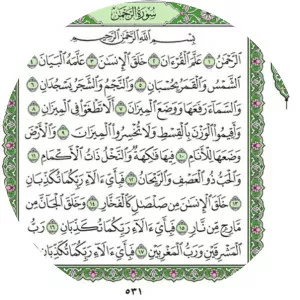 سُورَةُ الرَّحْمَٰن
بِسْمِ اللَّهِ الرَّحْمَٰنِ الرَّحِيمِ
الرَّحْمَٰنُ ١ عَلَّمَ الْقُرْءَانَ ٢ خَلَقَ الْإِنسَٰنَ ٣ عَلَّمَهُ الْبَيَانَ ٤
الشَّمْسُ وَالْقَمَرُ بِحُسْبَانٍ ٥ وَالنَّجْمُ وَالشَّجَرُ يَسْجُدَانِ ٦
وَالسَّمَاءَ رَفَعَهَا وَوَضَعَ الْمِيزَانَ ٧ أَلَّا تَطْغَوْا فِي الْمِيزَانِ ٨
وَأَقِيمُوا الْوَزْنَ بِالْقِسْطِ وَلَا تُخْسِرُوا الْمِيزَانَ ٩ وَالْأَرْضَ
وَضَعَهَا لِلْأَنَامِ ١٠ فِيهَا فَٰكِهَةٌ وَالنَّخْلُ ذَاتُ الْأَكْمَامِ ١١
وَالْحَبُّ ذُو الْعَصْفِ وَالرَّيْحَانُ ١٢ فَبِأَيِّ ءَالَاءِ رَبِّكُمَا تُكَذِّبَانِ
١٣ خَلَقَ الْإِنسَٰنَ مِن صَلْصَٰلٍ كَالْفَخَّارِ ١٤ وَخَلَقَ الْجَانَّ مِن
مَّارِجٍ مِّن نَّارٍ ١٥ فَبِأَيِّ ءَالَاءِ رَبِّكُمَا تُكَذِّبَانِ ١٦ رَبُّ
الْمَشْرِقَيْنِ وَرَبُّ الْمَغْرِبَيْنِ ١٧ فَبِأَيِّ ءَالَاءِ رَبِّكُمَا تُكَذِّبَانِ
٥٣١